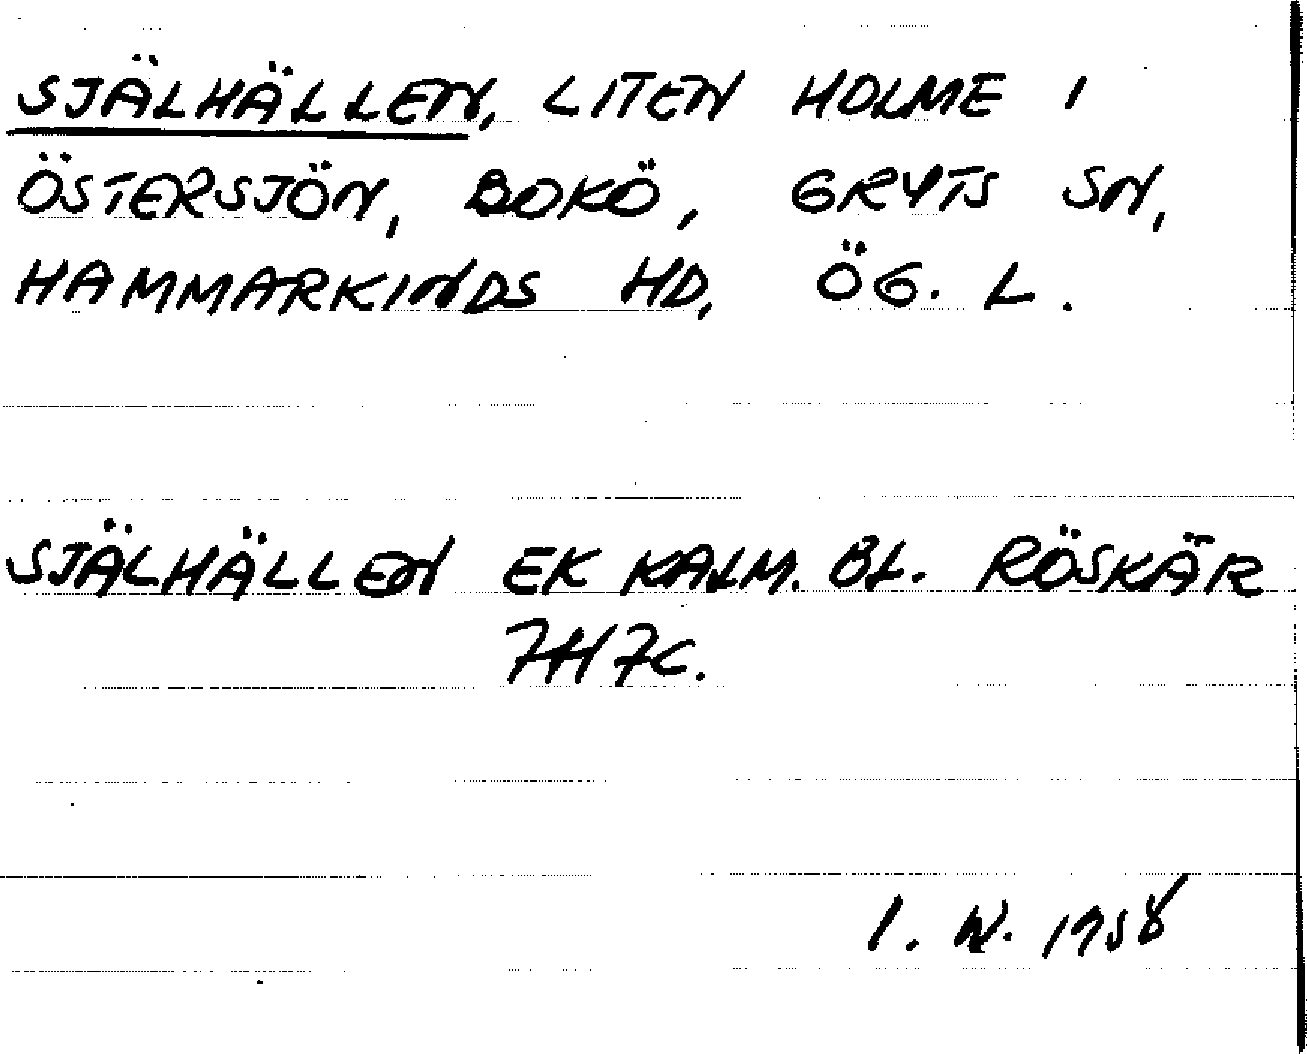 SJÄLHÄLLEN, LITEN HOLME I
ÖSTERSJÖN, BOKÖ, GRYTS SN,
HAMMARKINDS HD, ÖG. L.
SJÄLHÄLLEN EK KALM. BL. RÖSKÄR
7H7C.
I. W. 1958